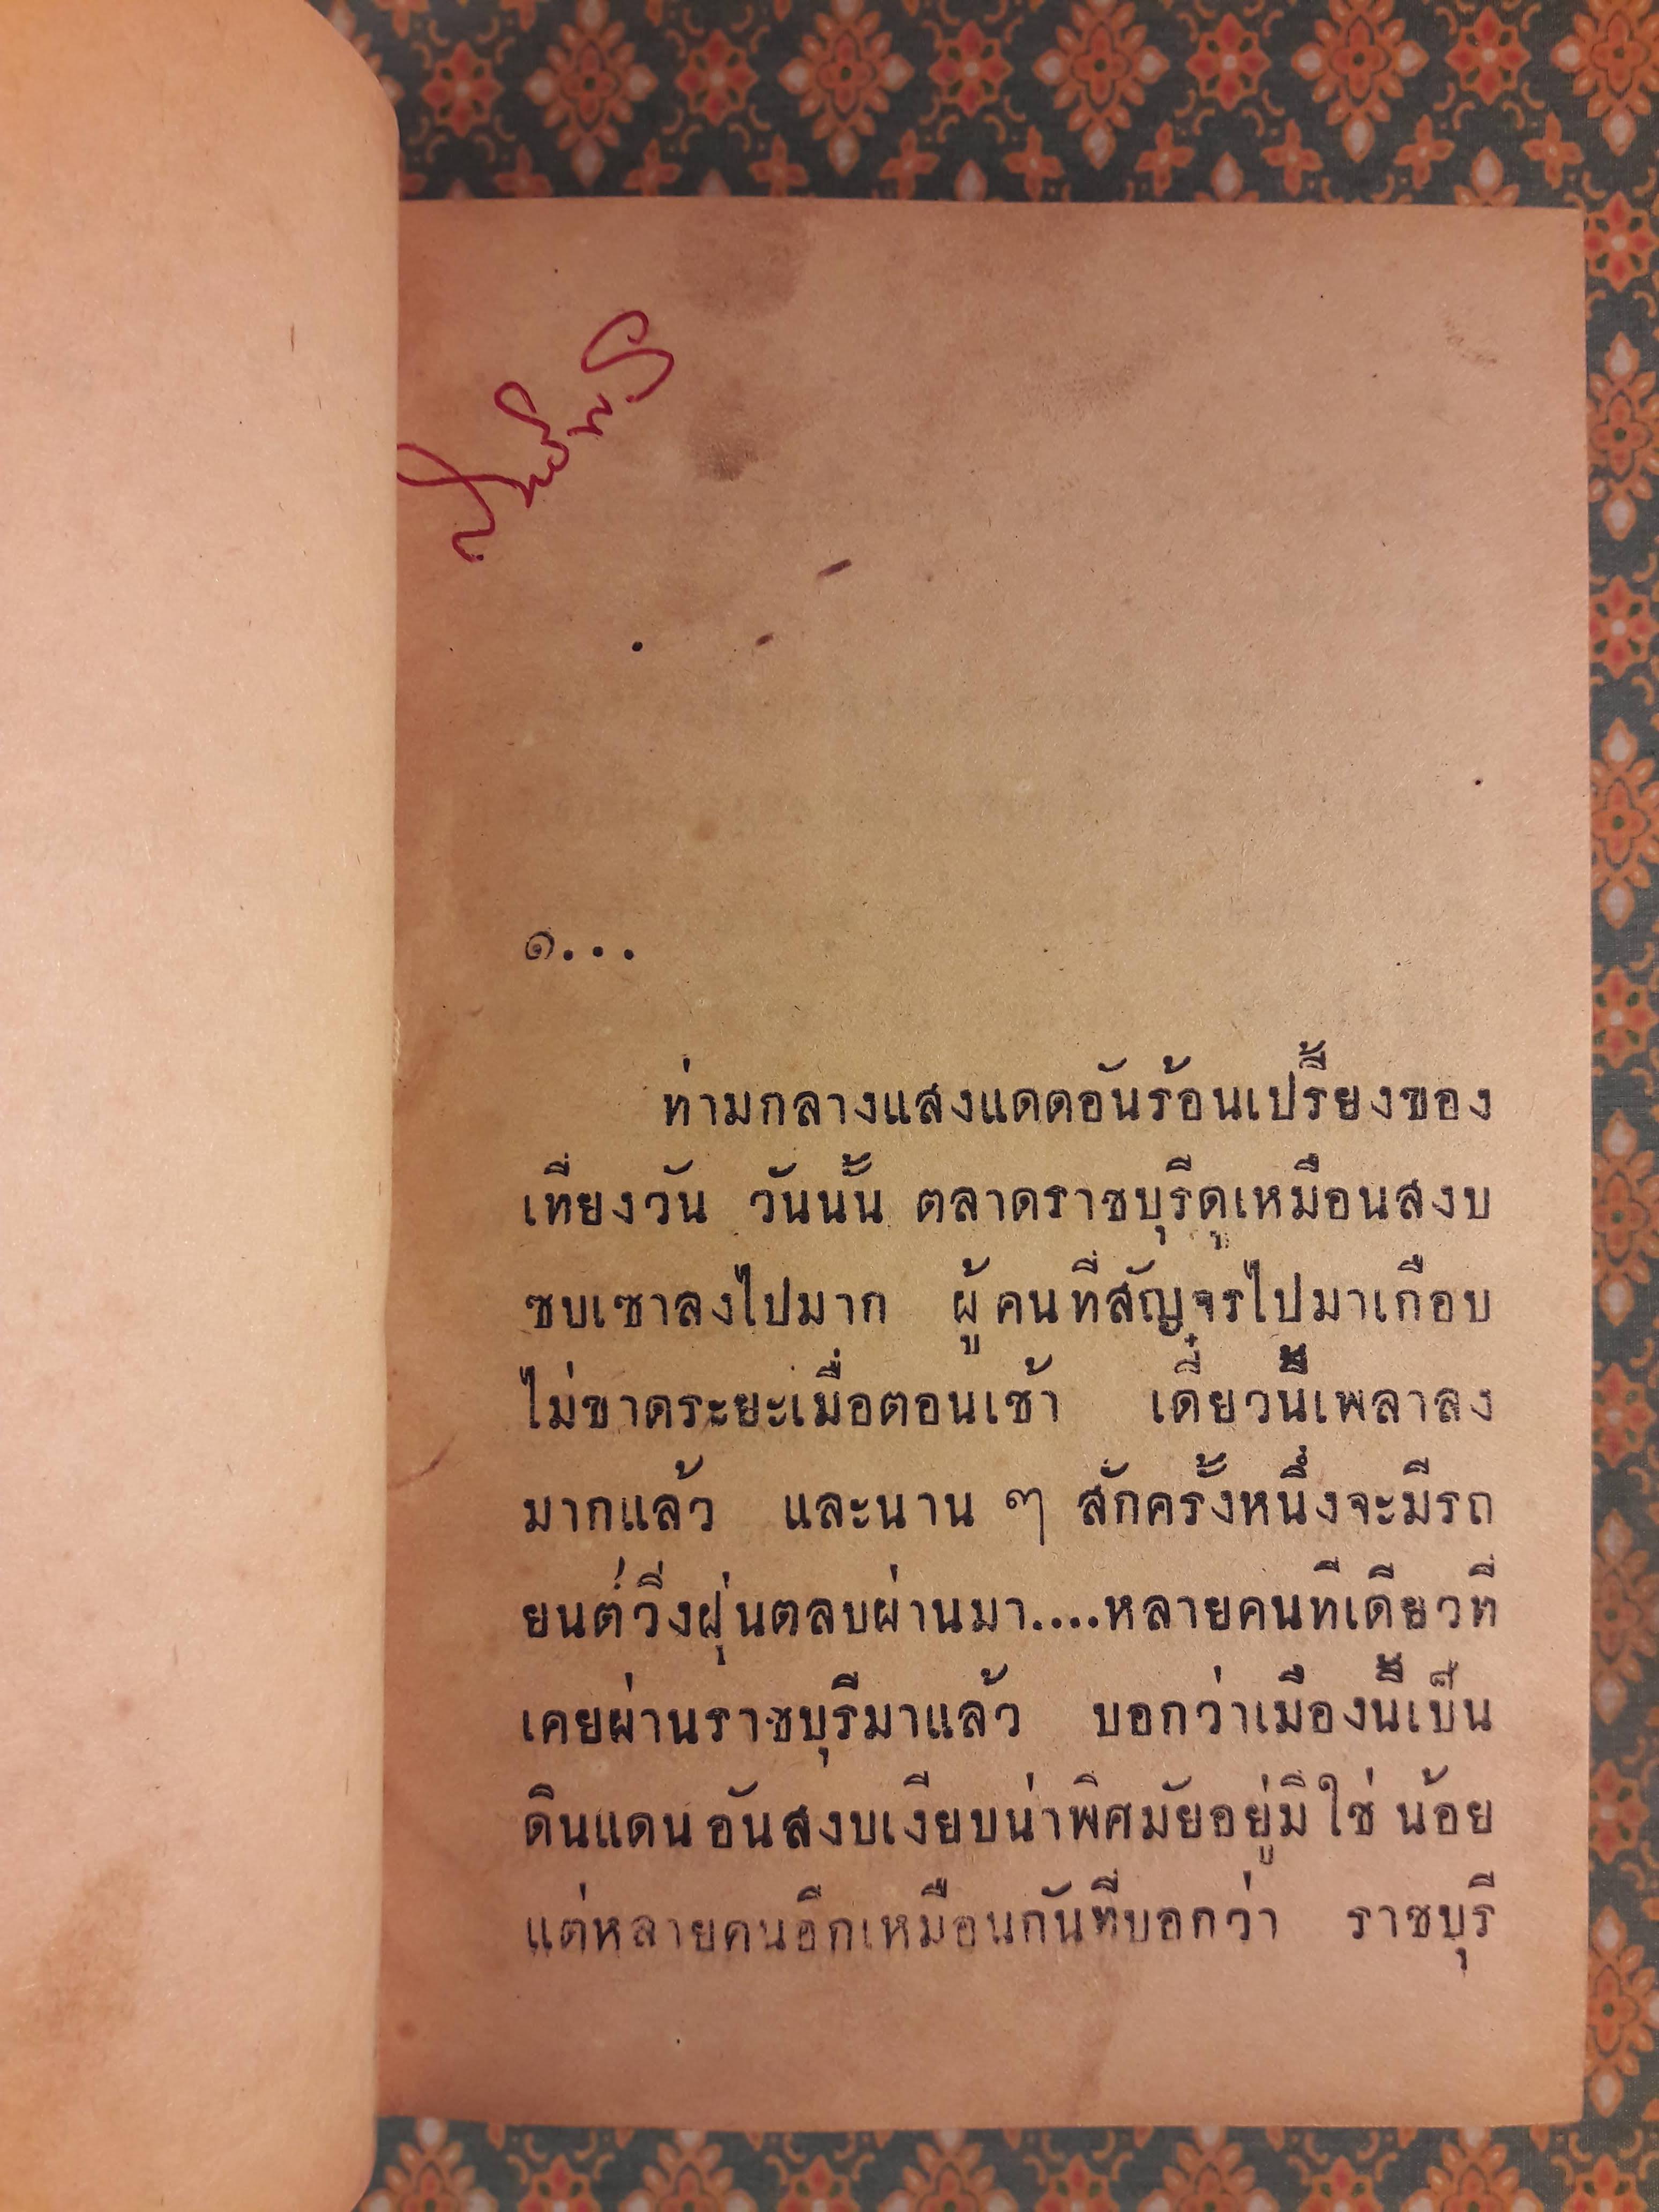 ๑...
ท่ามกลางแสงแดดอันร้อนเปรี้ยงของ
เที่ยงวัน วันนั้น ตลาดราชบุรีดูเหมือนสงบ
ซบเซาลงไปมาก ผู้คนที่สัญจรไปมาเกือบ
ไม่ขาดระยะเมื่อตอนเช้า เดี๋ยวนี้เพลาลง
มากแล้ว และนาน ๆ สักครั้งหนึ่งจะมีรถ
ยนต์วิ่งฝุ่นตลบผ่านมา....หลายคนทีเดียวที่
เคยผ่านราชบุรีมาแล้ว บอกว่าเมืองนี้เป็น
ดินแดนอันสงบเงียบน่าพิศมัยอยู่มิใช่น้อย
แต่หลายคนอีกเหมือนกันที่บอกว่า ราชบุรี